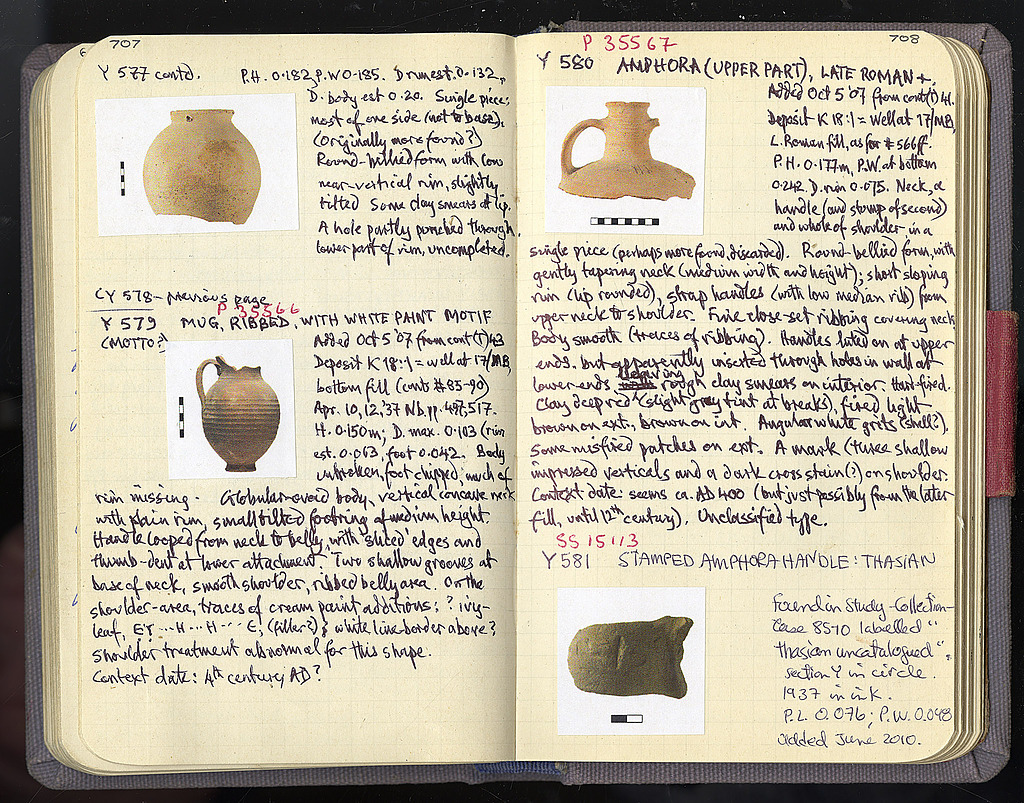 707
Y 577 contd. P.H. 0.182, P.W 0.185. D rim est. 0.132,
D. body est 0.20. Single piece,
most of one side (not to base).
(Originally more found?)
Round-bellied form with low
near-vertical rim, slightly
tilted Some clay smears at lip.
A hole partly punched through
lower part of rim, uncompleted.
(Y 578 - previous page
P 35566
Y 579 MUG, RIBBED, WITH WHITE PAINT MOTIF
(MOTTO?) Added Oct 5 '07 from cont(T) 43
Deposit K 18:1 = well at 17/MB,
bottom fill (conts #85-90)
Apr. 10, 12, '37 Nb. pp. 497, 517.
H. 0.150m; D. max. 0.103 (rim
est. 0.063, foot 0.042. Body
unbroken, foot chipped, much of
rim missing. Globular-ovoid body, vertical concave neck
with plain rim, small tilted footring of medium height.
Handle looped from neck to belly, with 'sliced' edges and
thumb-dent at lower attachment. Two shallow grooves at
base of neck, smooth shoulder, ribbed belly area. On the
shoulder-area, traces of cream paint additions: ? ivy-
leaf, EY ··· H ··· H ··· E, (filler?) white line-border above?
Shoulder treatment abnormal for this shape.
Context date: 4th century, AD?
708
P 35567
Y 580 AMPHORA (UPPER PART), LATE ROMAN +,
Added Oct 5 '07 from cont(T) 41.
Deposit K 18:1 = well at 17/MB,
L. Roman fill, as for # 566ff.
P.H. 0.177m, P.W. at bottom
0.242, D. rim 0.075. Neck, a
handle (and stump of second)
and whole of shoulder in a
single piece (perhaps more found, discarded). Round-bellied form, with
gently tapering neck (medium width and height); short sloping
rim (lip rounded), strap handles (with low median rib) from
upper neck to shoulder. Fine close-set ribbing covering neck.
Body smooth (traces of ribbing). Handles luted on at upper
ends, but apparently inserted through holes in wall at
lower ends, leaving rough clay smears on interior. Hart-fired.
Clay deep red (slight grey tint at breaks), fired light
brown on ext., brown on int. Angular white grits (shell?).
Some misfired patches on ext. A mark (three shallow
impressed verticals and a dark cross stain (?) on shoulder.
Context date: seems ca. AD 400 (but just possibly from the later
fill, until 12th century). Unclassified type.
SS 15113
Y 581 STAMPED AMPHORA HANDLE: THASIAN
Found in Study-Collection
Case 8510 labelled "
thasian uncatalogued".
section Y in circle.
1937 in ink.
P.L. 0.076; P.W. 0.048
added June 2010.